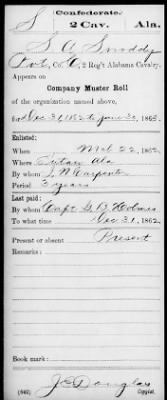 S
Confederate.
2 Cav.
Ala.
S. A. Snoddy
Pvt, Co. C, 2 Reg't Alabama Cavalry.
Appears on
Company Muster Roll
of the organization named above,
for Dec 31, 1862 to June 30, 1863.
Enlisted:
When Mch 22, 1862
Where Eutaw Ala
By whom J. N. Carpenter
Period 3 years
Last paid:
By whom Capt. G. B. Holmes
To what time Dec 31, 1862.
Present or absent Present
Remarks:
Book mark:
(642)
J. C. Douglas
Copyist.